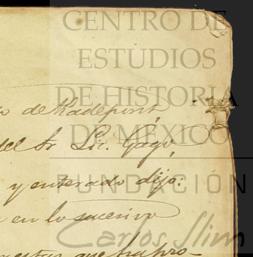 CENTRO DE
ESTUDIOS
DE HISTORIA
DE MÉXICO
FUNDACIÓN
Carlos Slim
de Kadepont,
del Sr. Lic. Gago,
y enterado dijo:
en lo sucesivo